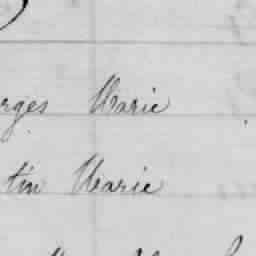 rges Marie
tin Marie